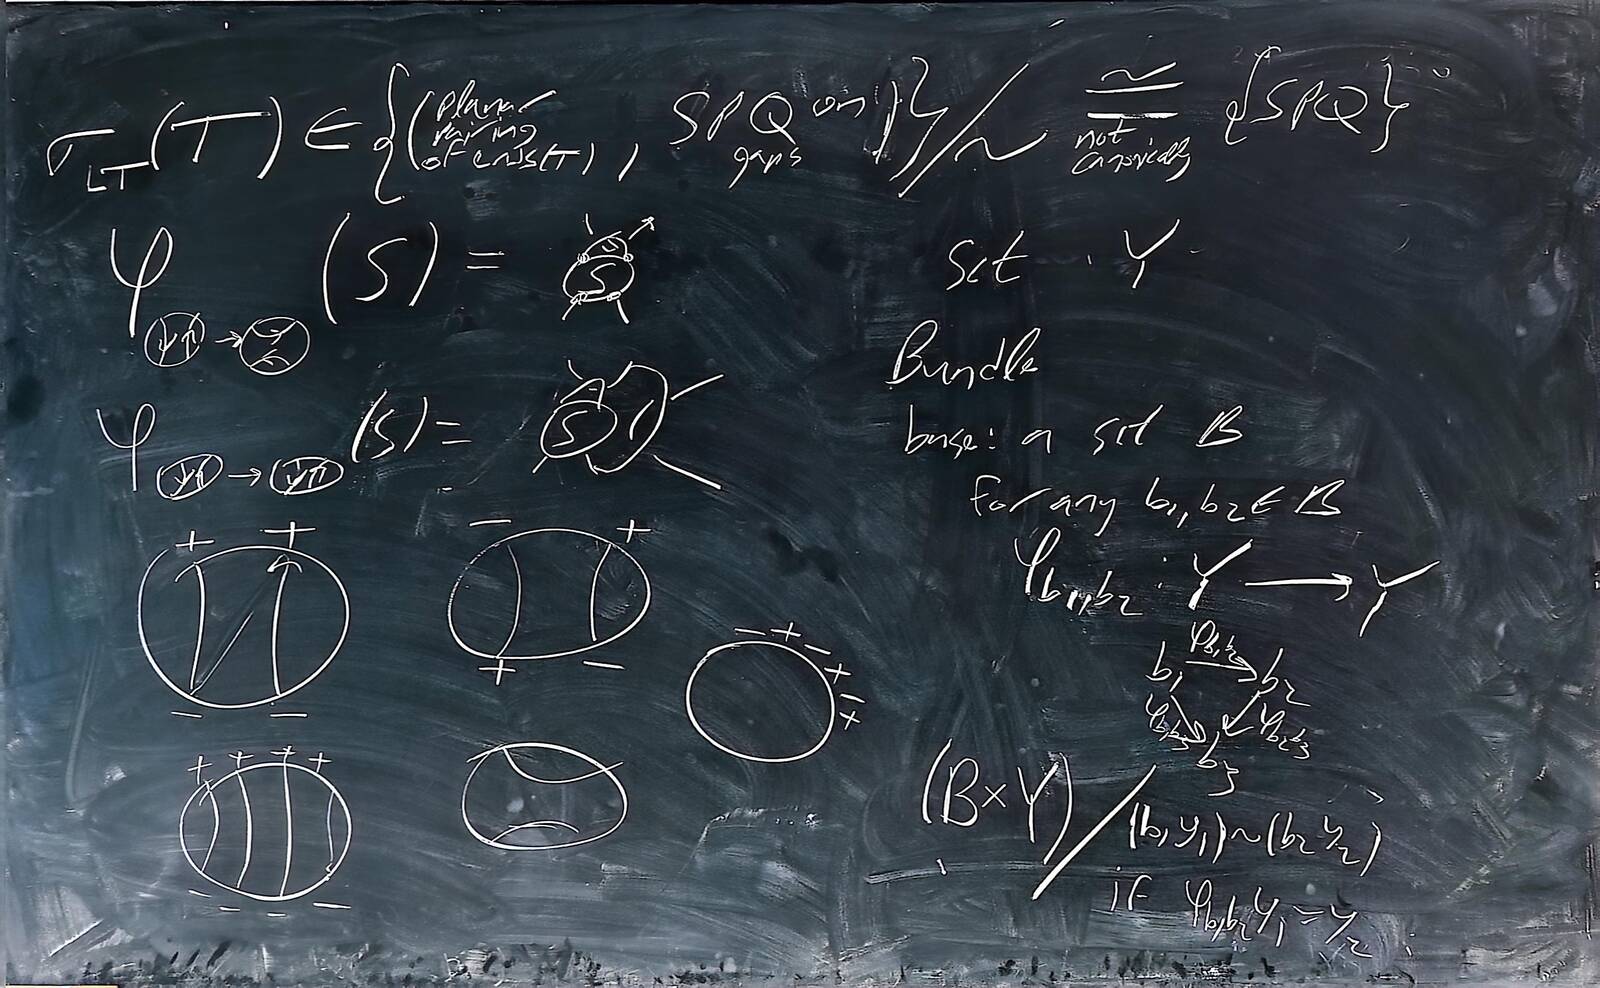 σ_LT(T) ∈ {(planar pairing of ends(T), SPQ on gaps)}/~ ≅ {SPQ}
not canonically
φ (S) = S
Set Y
Bundle
φ (S) = S
base: a set B
for any b₁, b₂ ∈ B
φ_b₁,b₂ : Y → Y
+ + - +
- - + -
- + - + - +
b₁ φ_b₁b₂ b₂
φ_b₁b₃ φ_b₂b₃
b₃
+ + + +
- - - -
(B×Y)/(b₁,y₁)~(b₂,y₂)
if φ_b₁b₂ y₁ = y₂